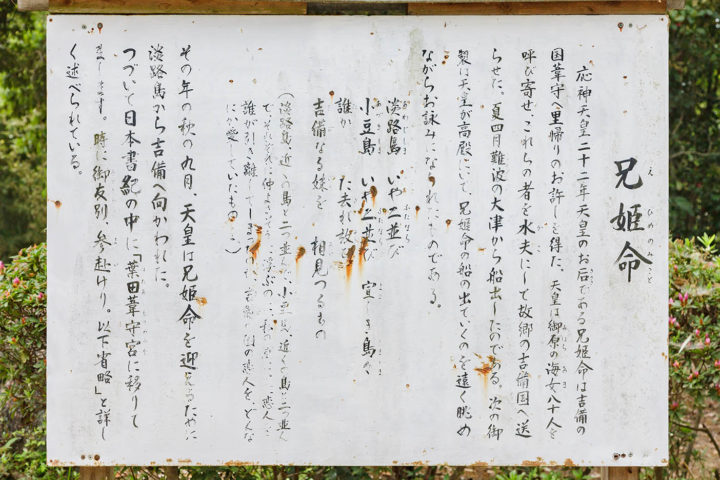 兄姫命
え ひめのみこと
応神天皇二十二年天皇のお后である兄姫命は吉備の
国葦守へ里帰りのお許しを得た。天皇は御原の海女八十人を
みはら あま
呼び寄せ、これらの者を水夫にして故郷の吉備国へ送
かこ
らせた。夏四月難波の大津から船出したのである。次の御
製は天皇が高殿にいて、兄姫命の船の出ていくのを遠く眺め
ながらお詠みになられたものである。
淡路島 いや二並び
あわじしま ふたなら
小豆島 いや二並び 宜しき島々
誰か た去れ放
吉備なる妹を 相見つるもの
(淡路島は近くの島と二つ並んで、小豆島も近くの島と二つ並ん
で、それぞれに仲よさそう 恋人と
誰が引き離してしま 国の恋人を、どんな
にか愛していたもの
その年の秋の九月、天皇は兄姫命を迎えるために
淡路島から吉備へ向かわれた。
つづいて日本書紀の中に「葉田葦守宮に移りて
まします。時に御友別、参赴けり。以下省略」と詳し
く述べられている。